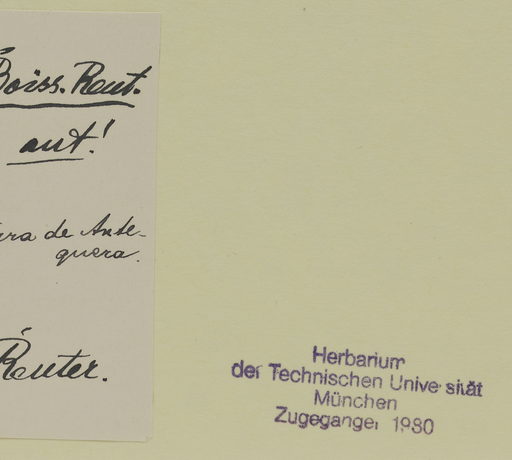 Boiss. Reut.
aut!
rra de Ante-
quera.
Reuter.
Herbarium
der Technischen Universität
München
Zugegangen 1980